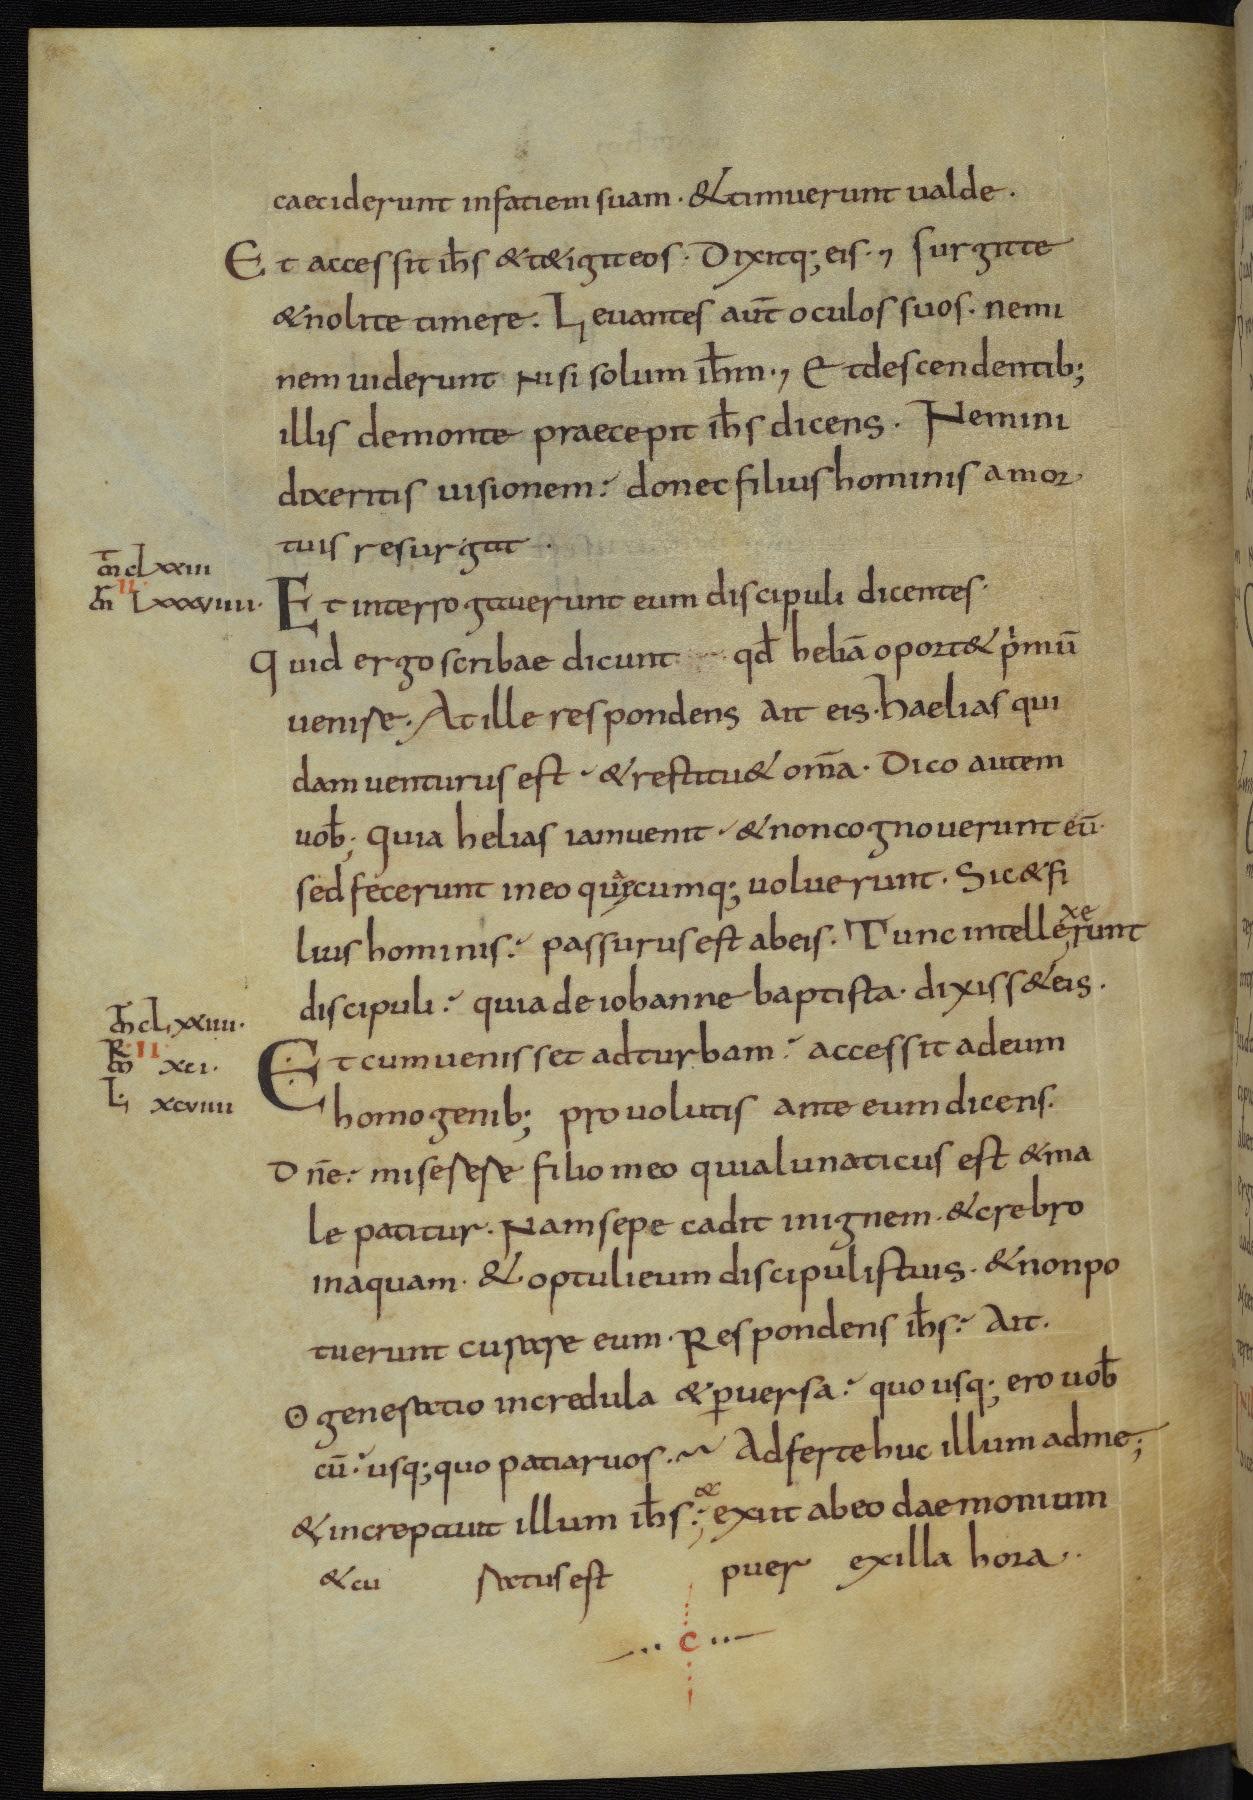 caeciderunt infatiem suam · &timuerunt ualde ·
Et accessit ih̄s &t&igit eos · Dixitq; eis ·, surgite
&nolite timere : Leuantes aut̄ oculos suos · nemi
nem uiderunt nisi solum ih̄m ·, Etdescendentib;
illis demonte praecepit ih̄s dicens · Nemini
dixeritis uisionem : donec filius hominis amor
tuis resurgat ·
m̄ clxxiii
II
m̄r lxxxviiii · Et interrogauerunt eum discipuli dicentes ·
Quid ergo scribae dicunt qd̄ heliā oport& p̄mū
uenire · At ille respondens ait eis · haelias qui
dam uenturus est · &restitu& om̄a · Dico autem
uob̄; quia helias iamuenit · &noncognouerunt eū ·
sed fecerunt ineo quęcumq; uoluerunt · Sic&fi
lius hominis : passurus est abeis · Tunc intellexerunt
discipuli : quia de iohanne baptista · dixiss& eis ·
m̄ clxxiiii ·
R · II
m̄ xci · Et cumuenisset adturbam : accessit adeum
L; xcviiii homo genib; prouolutis ante eum dicens ·
Dn̄e : miserere filio meo quialunaticus est &ma
le patitur · Namsepe cadit inignem · &crebro
inaquam · &optulieum discipulistuis · &nonpo
tuerunt curare eum · Respondens ih̄s : Ait ·
O generatio incredula &p̄uersa : quo usq; ero uob̄
cū : usq; quo patiaruos · Adferte huc illum adme;
&increpauit illum ih̄s : & exiit abeo daemonium
&cu ratus est puer exilla hora ·
c